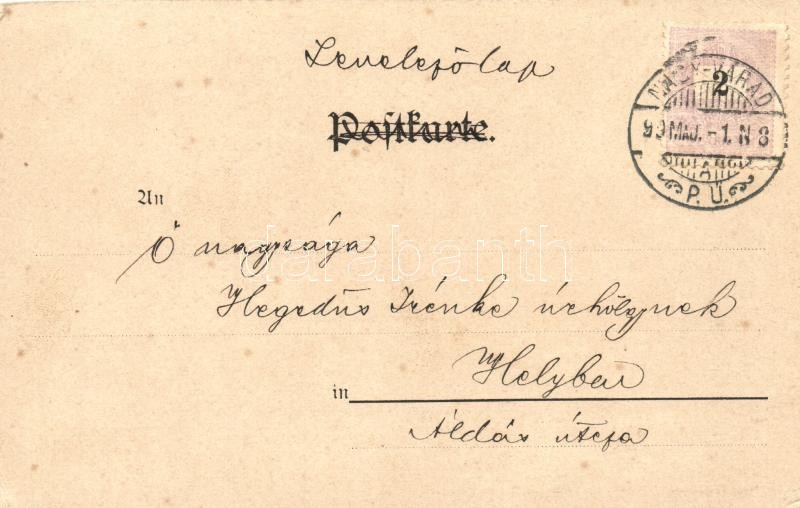 Levelezőlap
Postkarte.
NAGY-VÁRAD
2
99 MÁJ. -1. N 8
P. U.
An
Ő nagysága
darabanth
Hegedűs Irénke úrhölgynek
Helyben
in
Áldás útcza